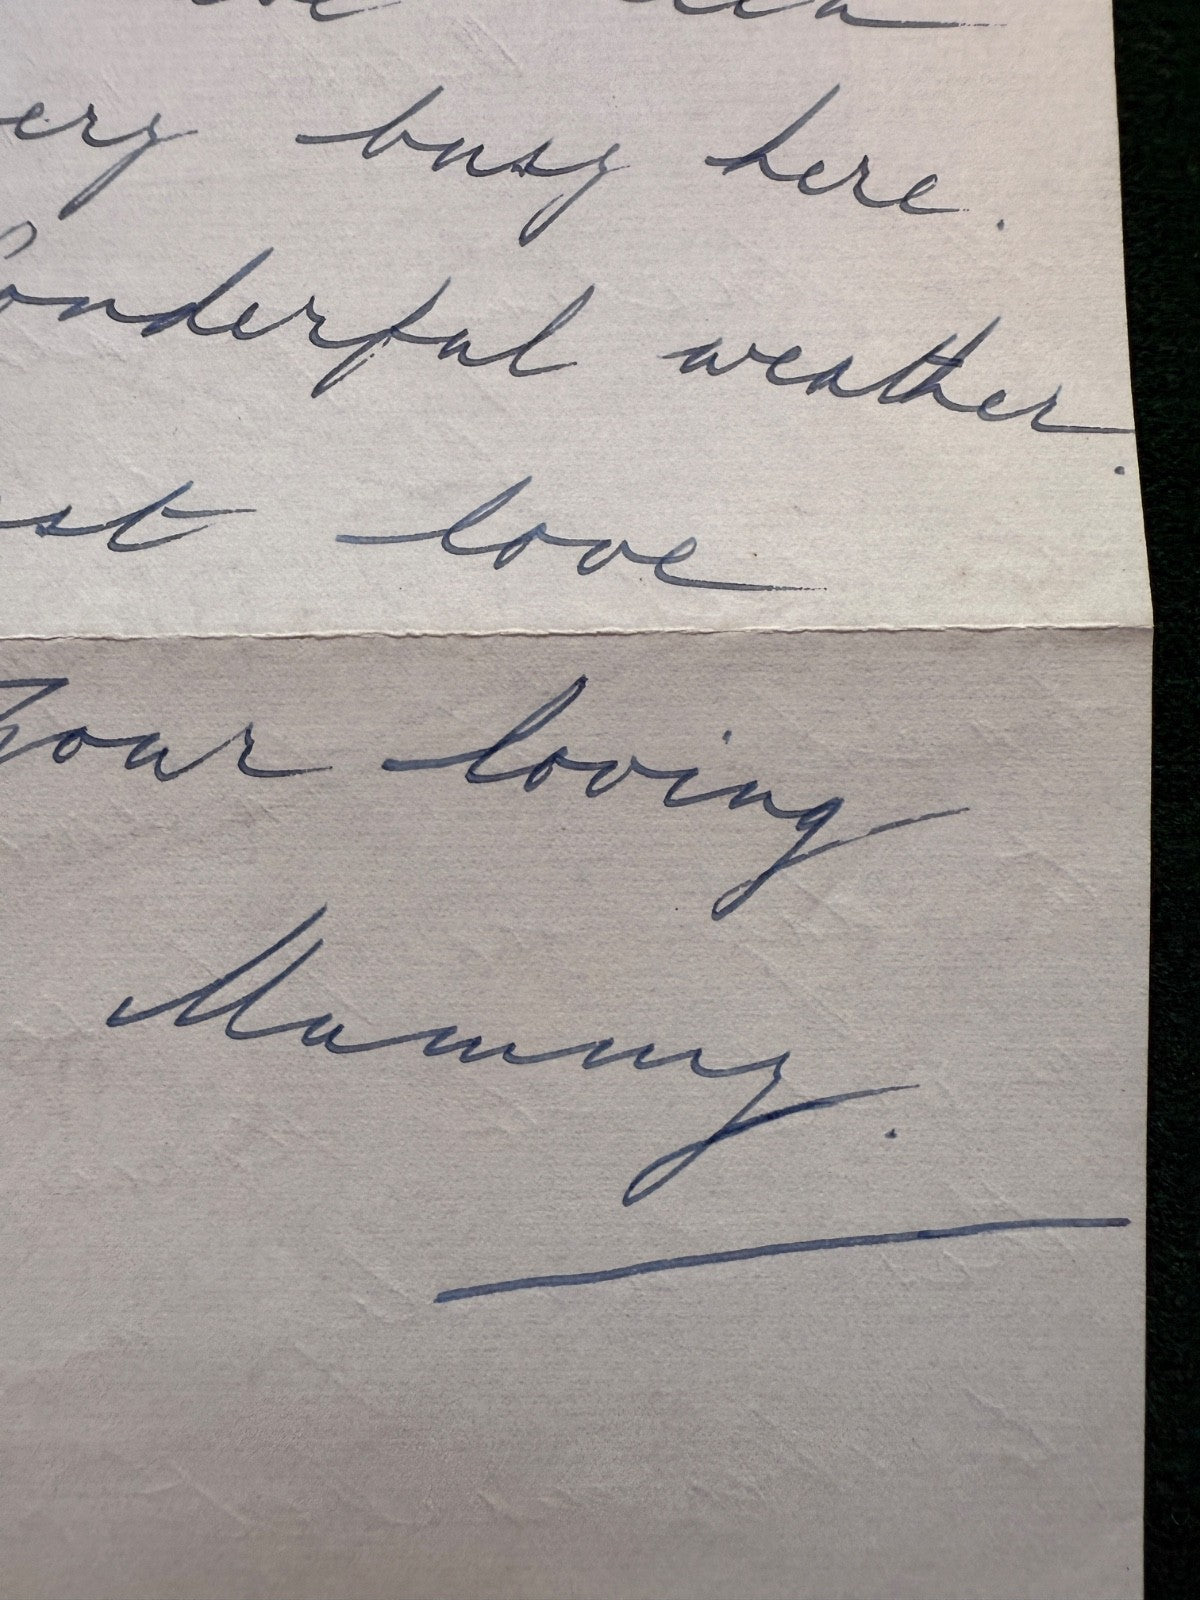 very busy here.
Wonderful weather.
love
Your loving
Mummy.